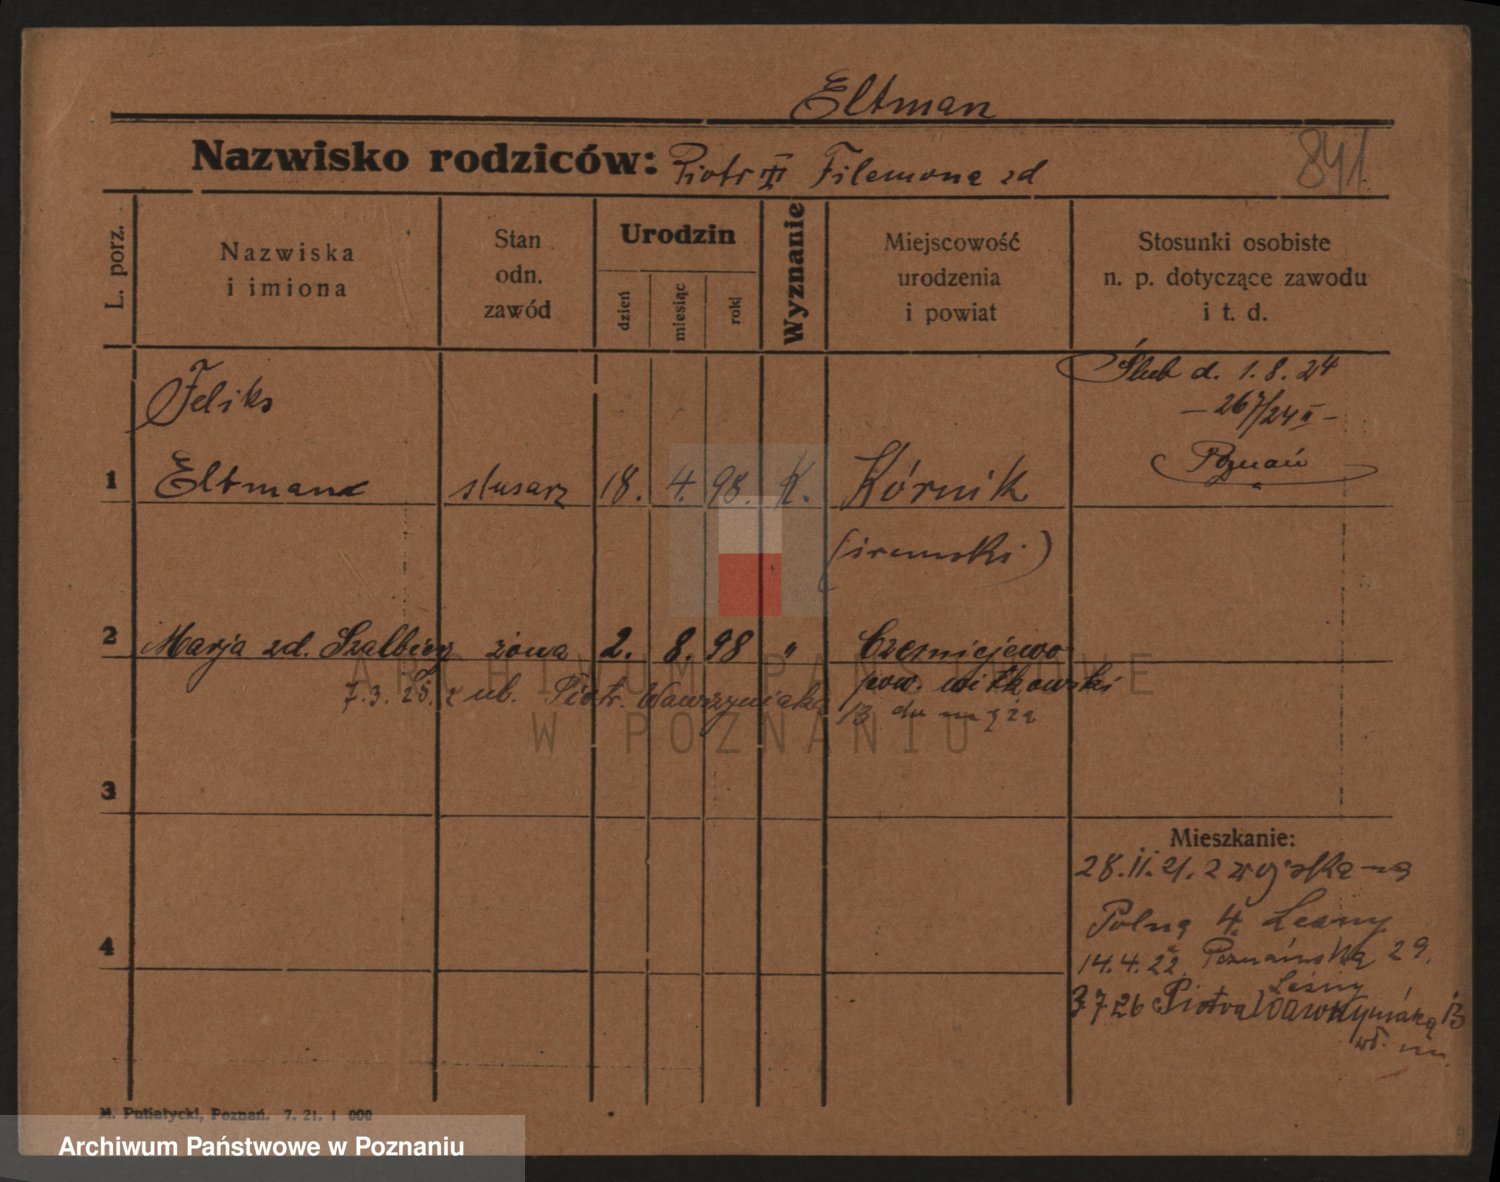 Eltman
Nazwisko rodziców: Piotr III Filemona zd
841
L. porz.
Nazwiska
i imiona
Stan
odn.
zawód
Urodzin
dzień
miesiąc
rok
Wyznanie
Miejscowość
urodzenia
i powiat
Stosunki osobiste
n. p. dotyczące zawodu
i t. d.
Ślub d. 1.8.24
- 267/24 II -
Poznań
Feliks
1 Eltman slusarz 18. 4. 98. K. Kórnik
(śremski)
2 Marja zd. Szalbierz żona 2. 8. 98 " Czerniejewo
pow. witkowski
7.3.25. z ul. Piotr. Wawrzyniaka 13 do męża
3
4
Mieszkanie:
28.11.21. z wojska na
Polną 4. Leśny
14.4.22. Poznańska 29.
Leśny
3 7 26 Piotra Wawrzyniaka 13
M. Putiatycki, Poznań. 7. 21. 1 000
ARCHIWUM PAŃSTWOWE
W POZNANIU
Archiwum Państwowe w Poznaniu